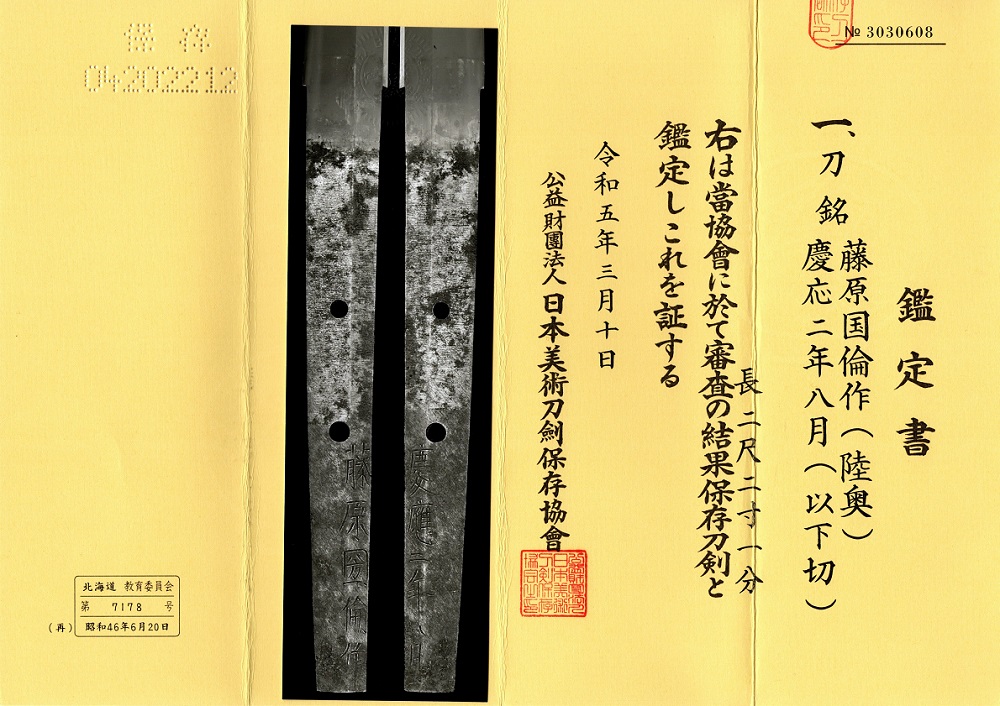 № 3030608
鑑定書
一、刀 銘 藤原国倫作(陸奥)
慶応二年八月(以下切)
長 二尺二寸一分
右は當協會に於て審査の結果保存刀剣と
鑑定しこれを証する
令和五年三月十日
公益財團法人 日本美術刀劍保存協會
藤原國倫作
慶應二年八月
保存
04202212
北海道 教育委員会
第 7178 号
(再) 昭和46年6月20日